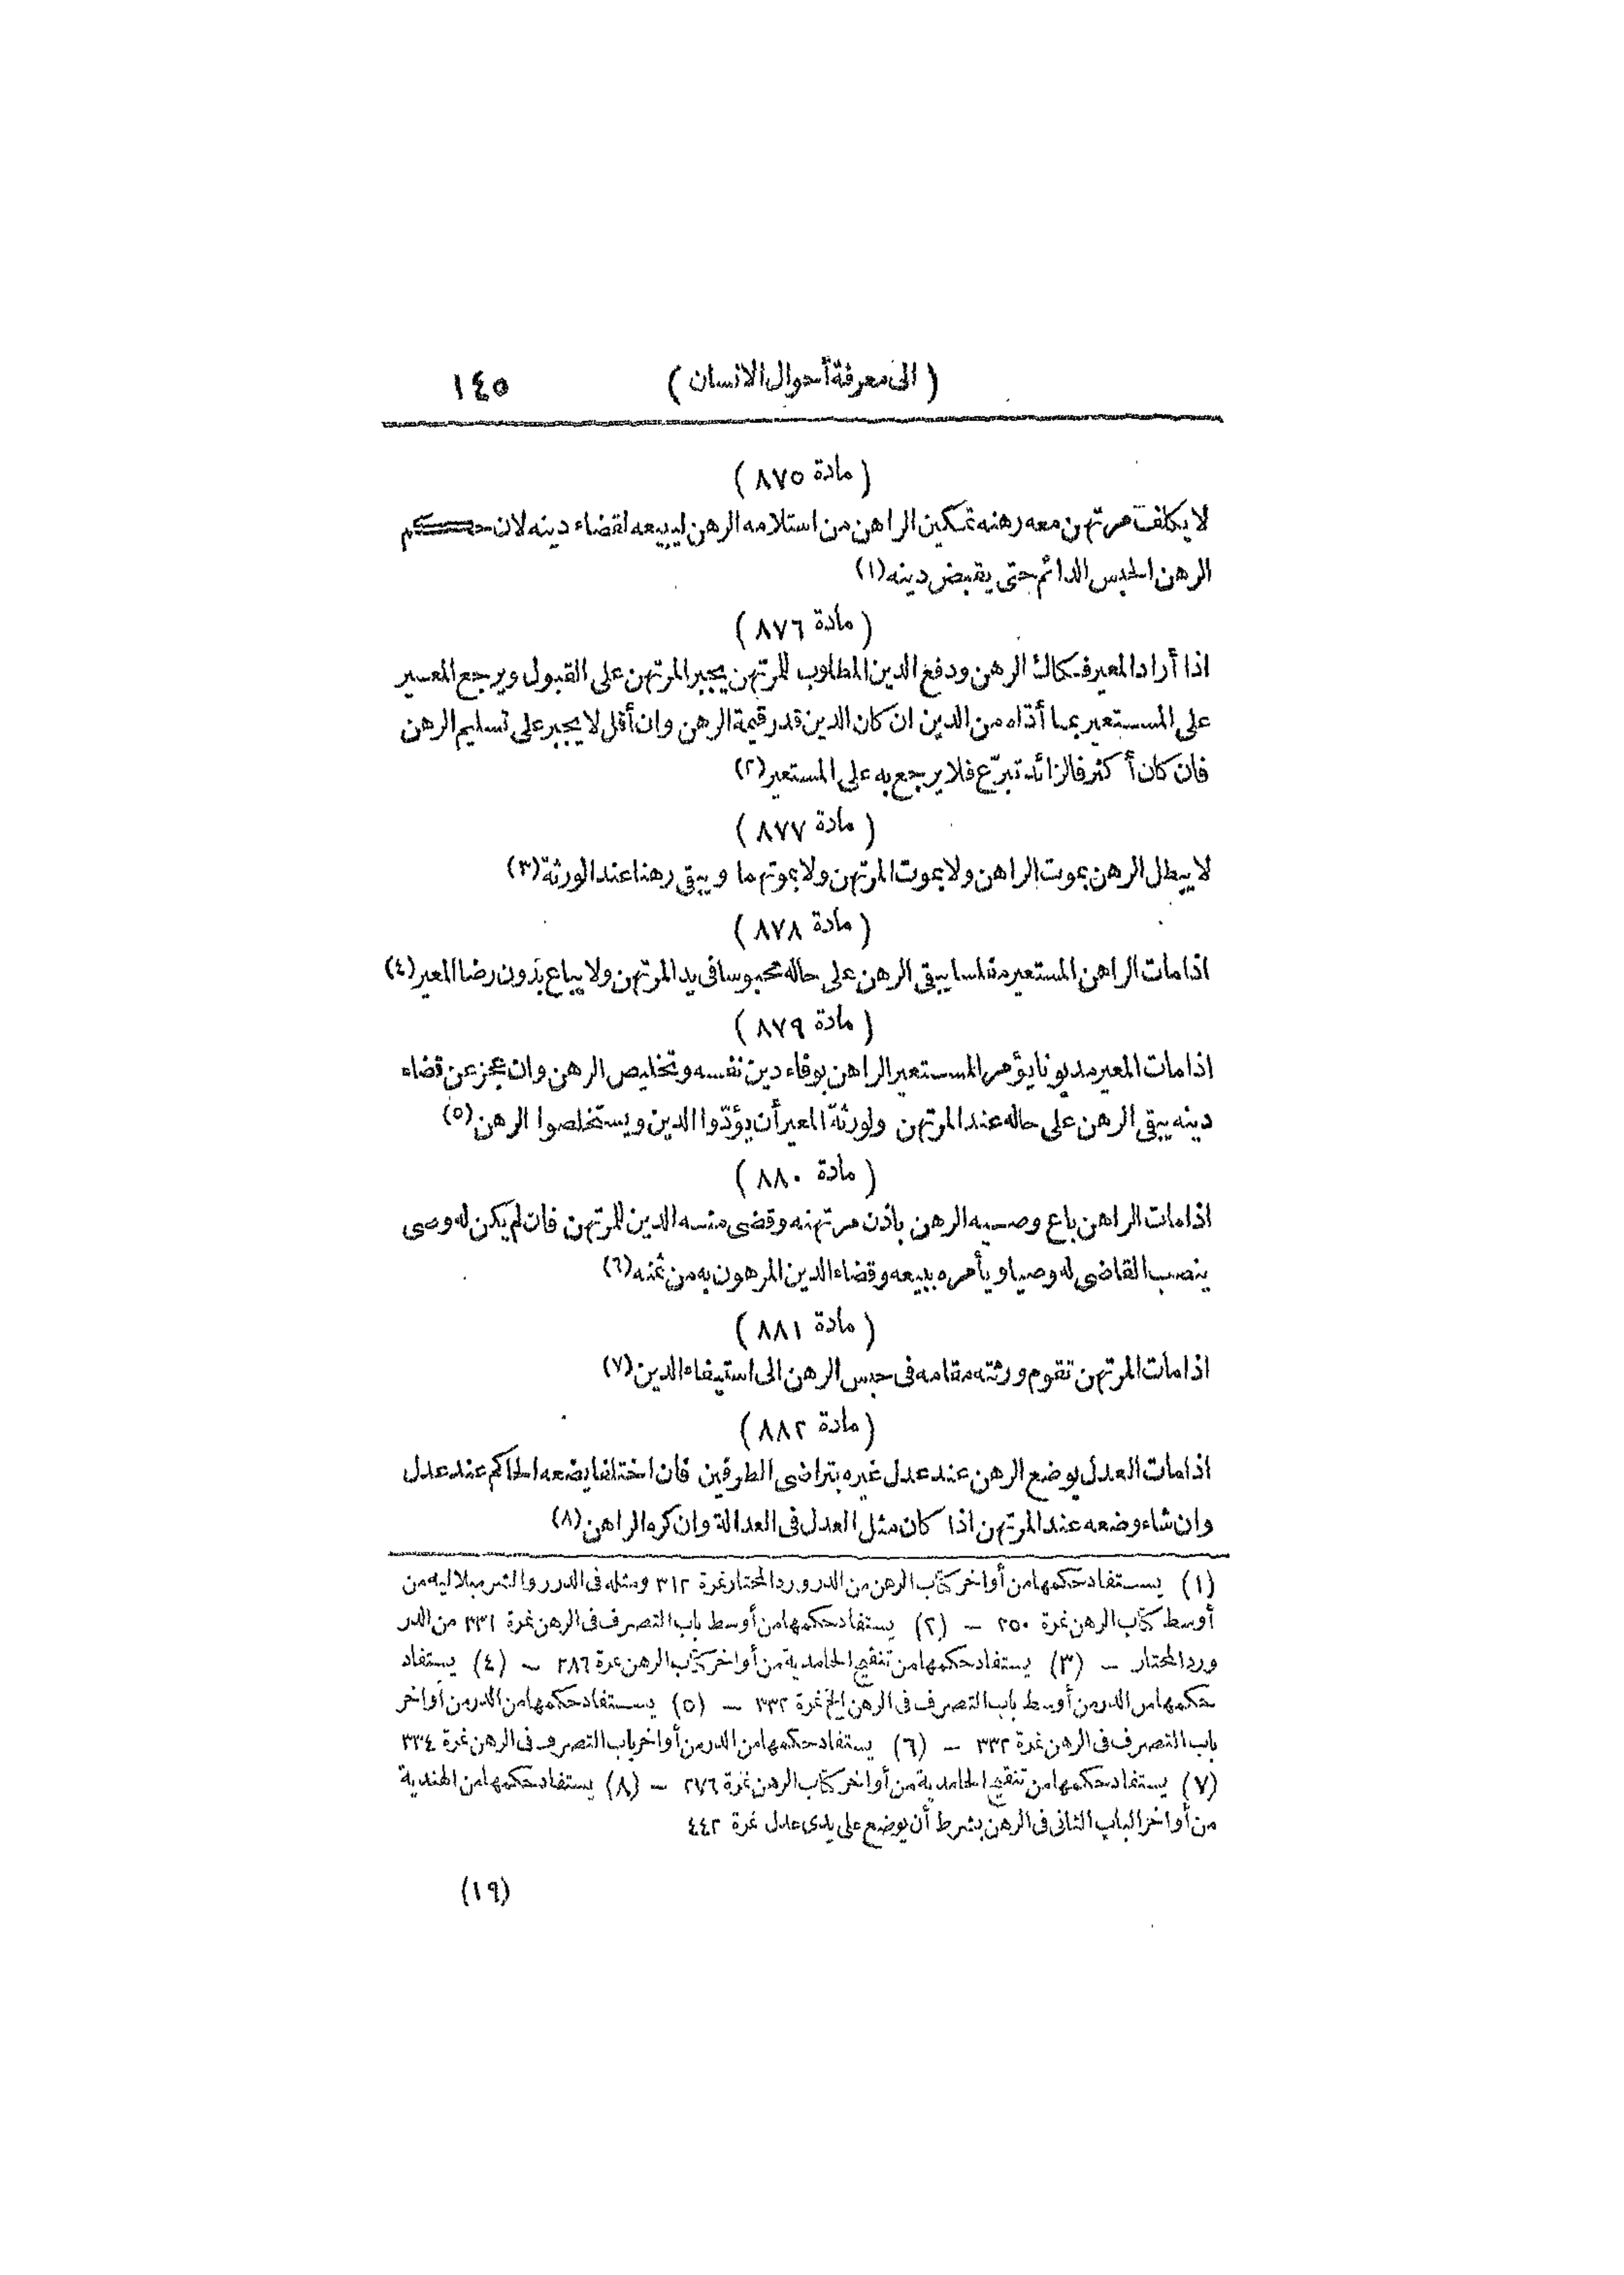 ( الى معرفة أحوال الانسان ) ١٤٥
( مادة ٨٧٥ )
لا يكلف مرتهن معه رهنه تمكين الراهن من استلامه الرهن ليبيعه لقضاء دينه لان حكم
الرهن الحبس الدائم حتى يقبض دينه (١)
( مادة ٨٧٦ )
اذا أراد المعير فكاك الرهن ودفع الدين المطلوب للمرتهن يجبر المرتهن على القبول ويرجع المعير
على المستعير بما أدّاه من الدين ان كان الدين قدر قيمة الرهن وان أقل لا يجبر على تسليم الرهن
فان كان أكثر فالزائد تبرّع فلا يرجع به على المستعير (٢)
( مادة ٨٧٧ )
لا يبطل الرهن بموت الراهن ولا بموت المرتهن ولا بموتهما ويبقى رهنا عند الورثة (٣)
( مادة ٨٧٨ )
اذا مات الراهن المستعير مفلسا يبقى الرهن على حاله محبوسا فى يد المرتهن ولا يباع بدون رضا المعير (٤)
( مادة ٨٧٩ )
اذا مات المعير مديونا يؤمر المستعير الراهن بوفاء دين نفسه وتخليص الرهن وان عجز عن قضاء
دينه يبقى الرهن على حاله عند المرتهن ولورثة المعير أن يؤدّوا الدين ويستخلصوا الرهن (٥)
( مادة ٨٨٠ )
اذا مات الراهن باع وصيه الرهن باذن مرتهنه وقضى منه الدين للمرتهن فان لم يكن له وصى
ينصب القاضى له وصيا ويأمره ببيعه وقضاء الدين المرهون به من ثمنه (٦)
( مادة ٨٨١ )
اذا مات المرتهن تقوم ورثته مقامه فى حبس الرهن الى استيفاء الدين (٧)
( مادة ٨٨٢ )
اذا مات العدل يوضع الرهن عند عدل غيره بتراضى الطرفين فان اختلفا يضعه الحاكم عند عدل
وان شاء وضعه عند المرتهن اذا كان مثل العدل فى العدالة وان كره الراهن (٨)
(١) يستفاد حكمها من أواخر كتاب الرهن من الدر ورد المحتار نمرة ٣١٢ ومثله فى الدرر والشرنبلاليه من
أوسط كتاب الرهن نمرة ٢٥٠ – (٢) يستفاد حكمها من أوسط باب التصرف فى الرهن نمرة ٣٣١ من الدر
ورد المحتار – (٣) يستفاد حكمها من تنقيح الحامدية من أواخر كتاب الرهن نمرة ٢٨٦ – (٤) يستفاد
حكمها من الدر من أوسط باب التصرف فى الرهن الخ نمرة ٣٣٢ – (٥) يستفاد حكمها من الدر من أواخر
باب التصرف فى الرهن نمرة ٣٣٢ – (٦) يستفاد حكمها من الدر من أواخر باب التصرف فى الرهن نمرة ٣٣٤
(٧) يستفاد حكمها من تنقيح الحامدية من أواخر كتاب الرهن نمرة ٢٧٦ – (٨) يستفاد حكمها من الهندية
من أواخر الباب الثانى فى الرهن بشرط أن يوضع على يدى عدل نمرة ٤٤٢
(١٩)